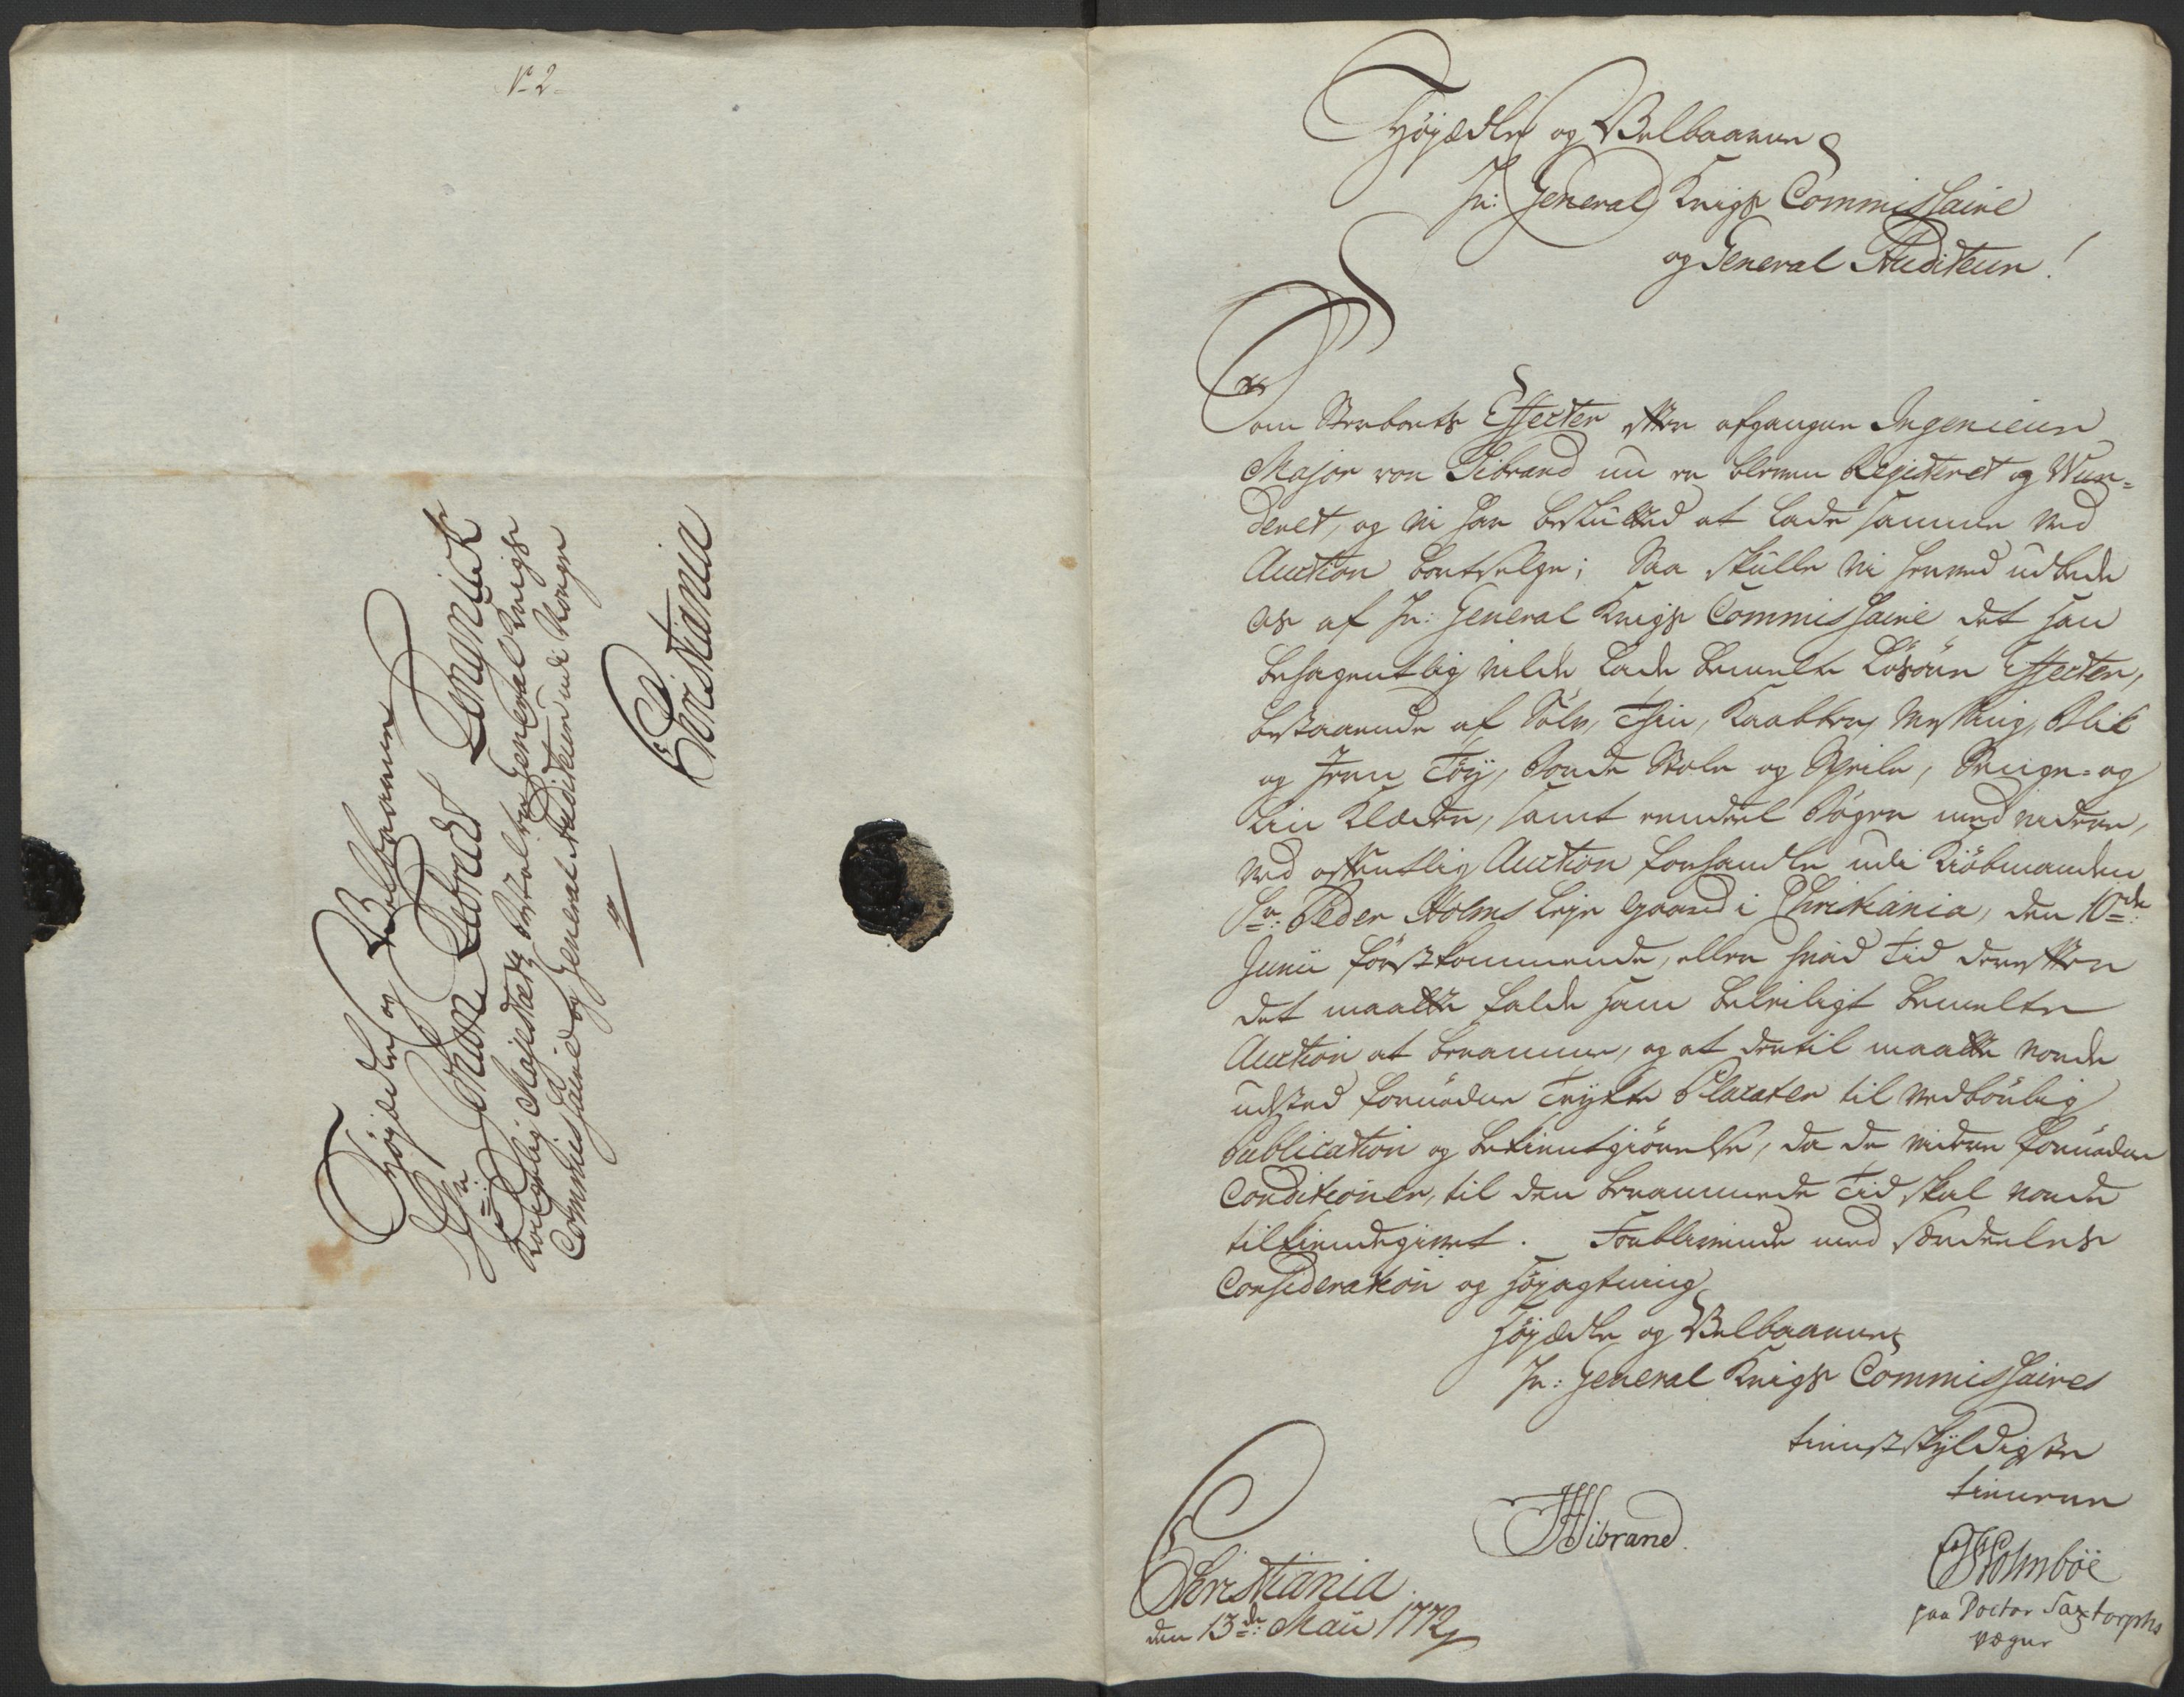 No 2
Højædle og Velbaarne
Hr: Johan Fabricius Longnick
Kongelig Majestæts Bestalter General Krigs
Commissaire og General Auditeur udi Norge
Christiania
Højædle og Velbaarne
Hr: General Krigs Commissaire
og General Auditeur!
Som Sterboets Effecter efter afgangne Ingenieur
Major von Sibrand nu er bleven Registeret og Wur-
deret, og vi har beslutted at lade samme ved
Auction bortselge; Saa skulle vi herved udbede
os af Hr: General Krigs Commissaire det han
behagentlig vilde lade bemelte Løsøre Effecter,
bestaaende af Sølv, Thin, Kaabber, Messing, Blik
og Jern Tøy, Borde Stole og Speile, Senge- og
Lin Klæder, samt eendeel Bøger med videre,
ved offentlig Auction forhandle udi Kiøbmanden
Sr: Peder Holms Leje Gaard i Christiania, den 10de:
Junii førstkommende, eller hvad Tid derefter
det maatte falde ham beleiligt bemelte
Auction at beramme, og at dertil maatte vorde
udsted fornødne Trykte Placater til vedbørlig
Publication og bekientgiørelse, da de videre fornødne
Conditioner, til den berammede Tid skal vorde
tilkiendegivet. Forblivende med særdeeles
Consideration og Højagtning
Højædle og Velbaarne
Hr: General Krigs Commissaires
tienstskyldigste
tienere
Sibrand.
Holmboe
paa Doctor Saxtorphs
vegne
Christiania
den 13de: Maii 1772